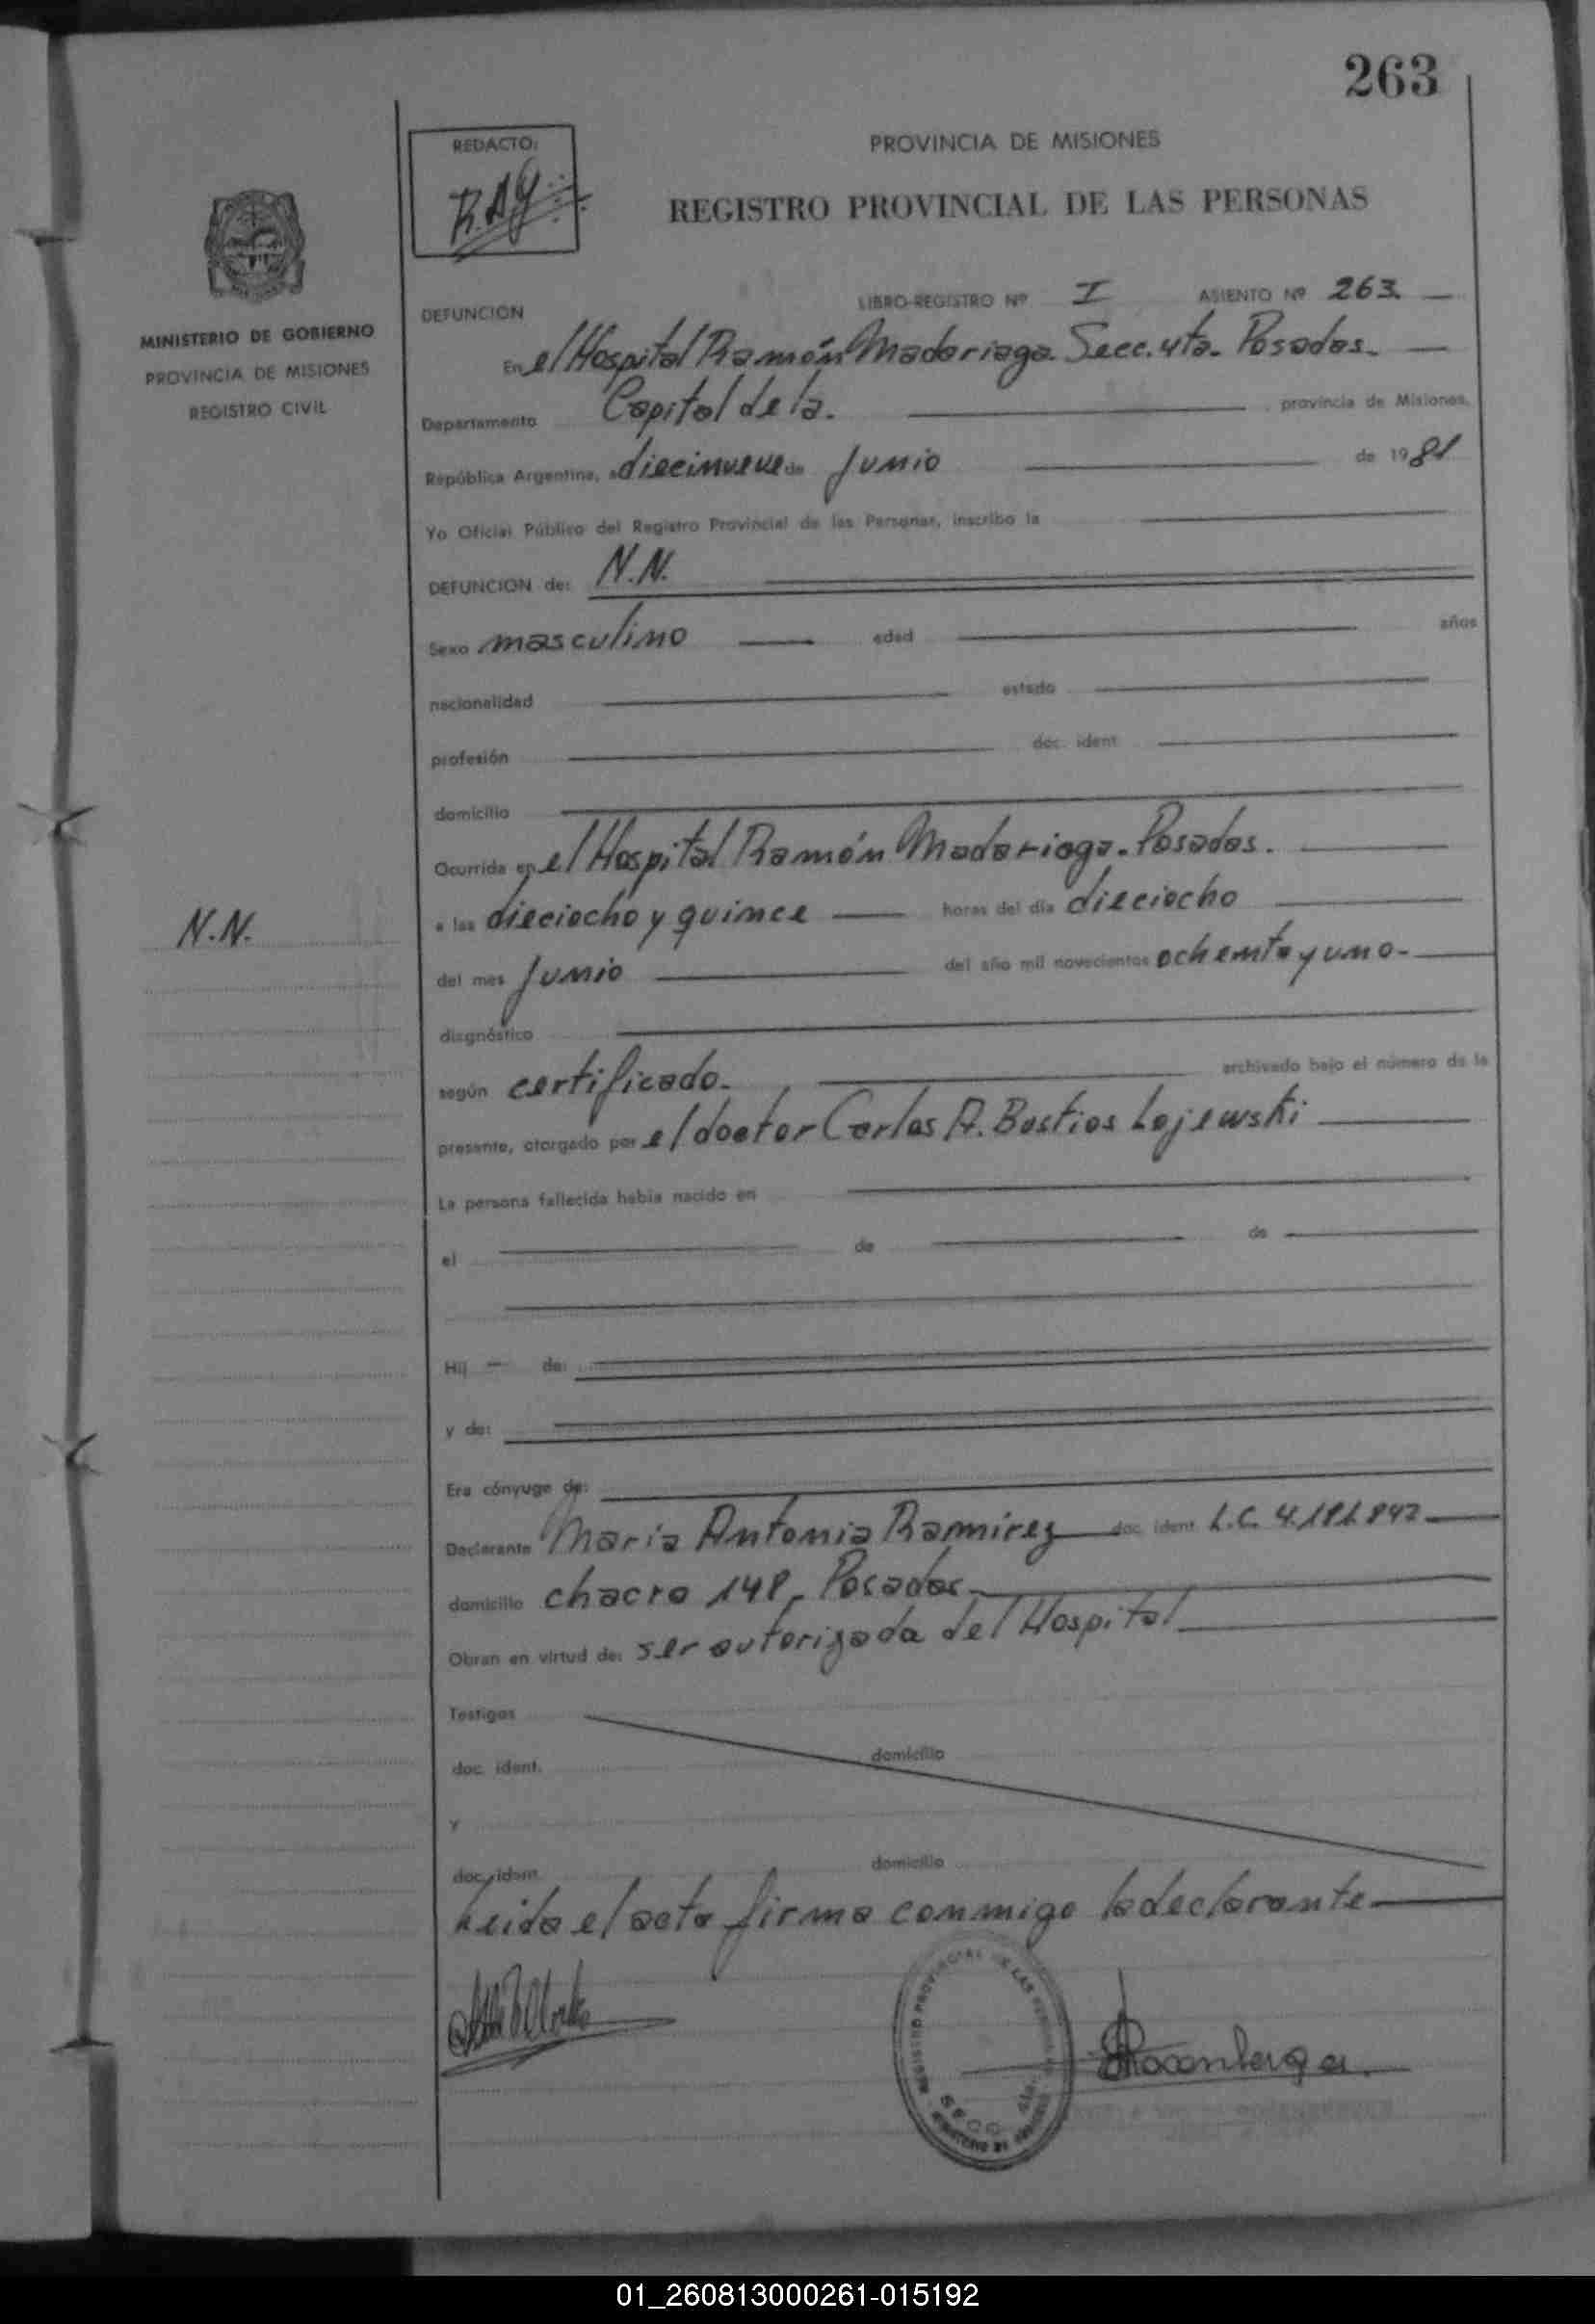 263
REDACTO:
R.A.G
PROVINCIA DE MISIONES
REGISTRO PROVINCIAL DE LAS PERSONAS
MINISTERIO DE GOBIERNO
PROVINCIA DE MISIONES
REGISTRO CIVIL
DEFUNCION
LIBRO-REGISTRO Nº I ASIENTO Nº 263
En el Hospital Ramón Madariaga. Secc. 4ta. Posadas.
Departamento Capital de la. provincia de Misiones,
República Argentina, a diecinueve de Junio de 1981
Yo Oficial Público del Registro Provincial de las Personas, inscribo la
DEFUNCION de: N.N.
Sexo masculino edad años
nacionalidad estado
profesión doc. ident
domicilio
Ocurrida en el Hospital Ramón Madariaga. Posadas.
N.N.
a las dieciocho y quince horas del día dieciocho
del mes Junio del año mil novecientos ochenta y uno.
diagnóstico
según certificado. archivado bajo el número de la
presente, otorgado por el doctor Carlos A. Bastios Lojewski
La persona fallecida había nacido en
el de de
Hij - de:
y de:
Era cónyuge de:
Declarante María Antonia Ramirez doc. ident L.C. 4.181.842
domicilio chacra 148, Posadas.
Obran en virtud de: ser autorizada del Hospital
Testigos
doc. ident. domicilio
y
doc. ident. domicilio
Leida el acta firma conmigo la declarante
REGISTRO PROVINCIAL DE LAS PERSONAS
SECC. 4ta.
01_260813000261-015192